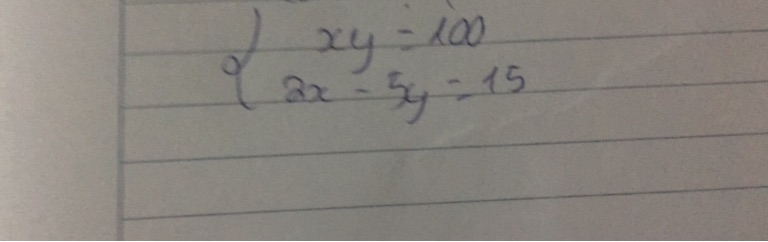 xy = 100
2x - 5y = 15